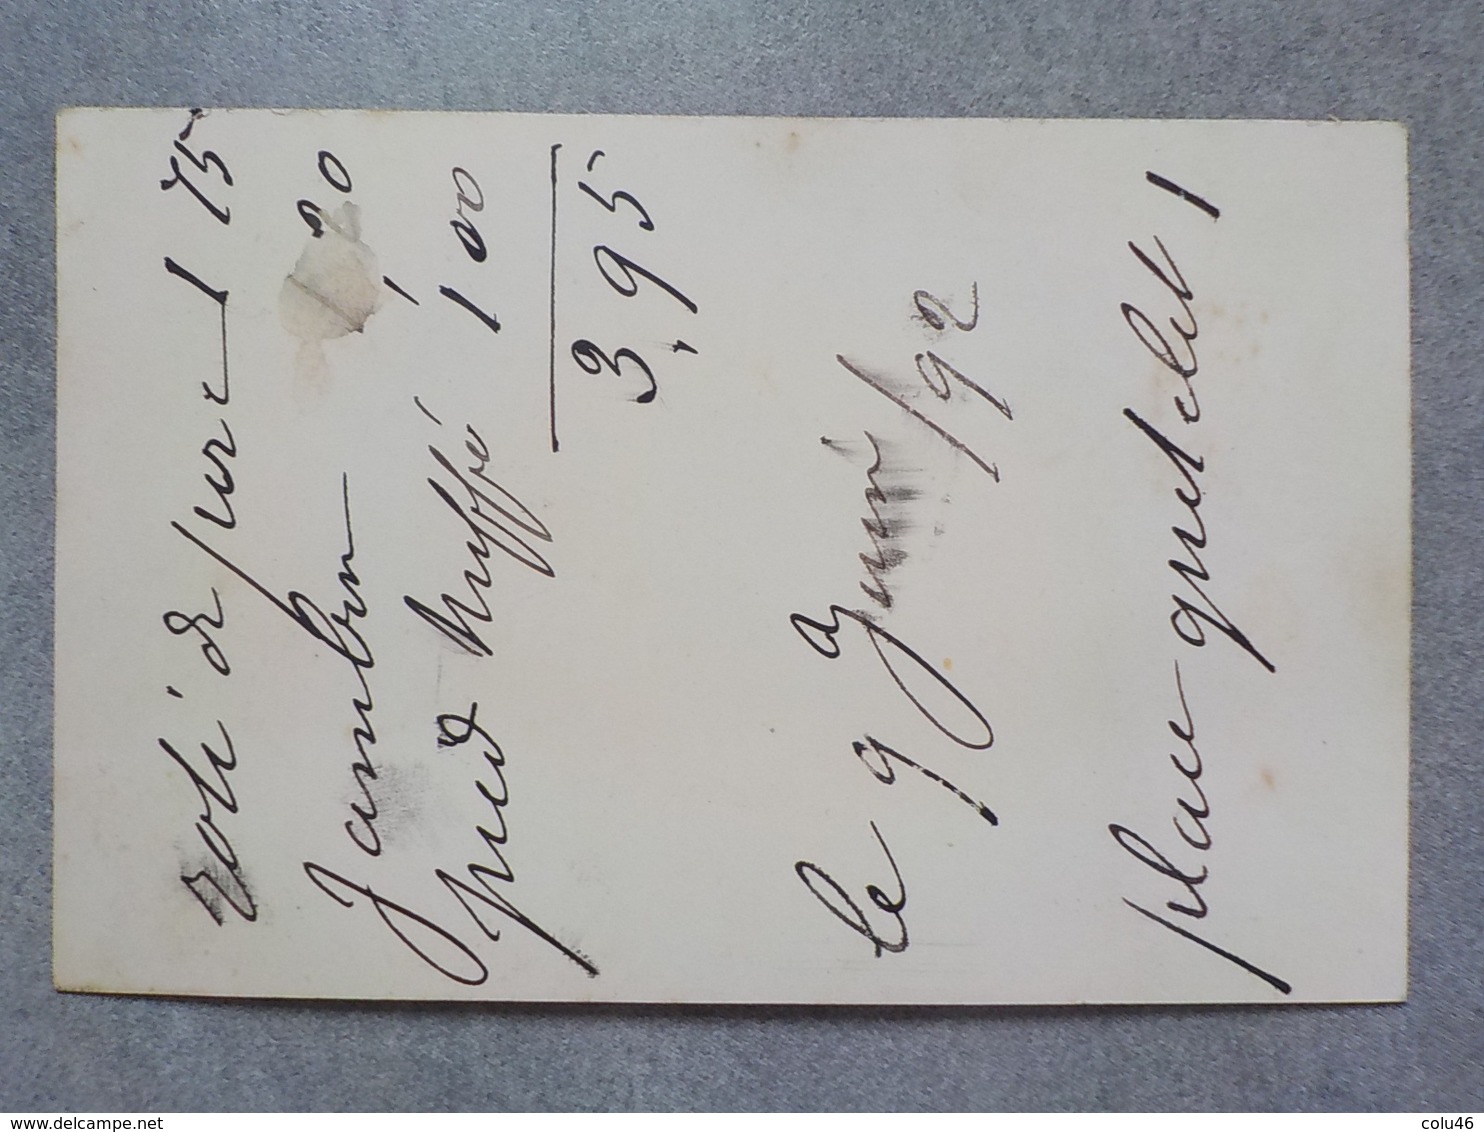 roti de porc 1 75
Jambon 20
pied truffé 1 00
3,95
le 9 Juin /92
place quetelet 1
www.delcampe.net
colu46